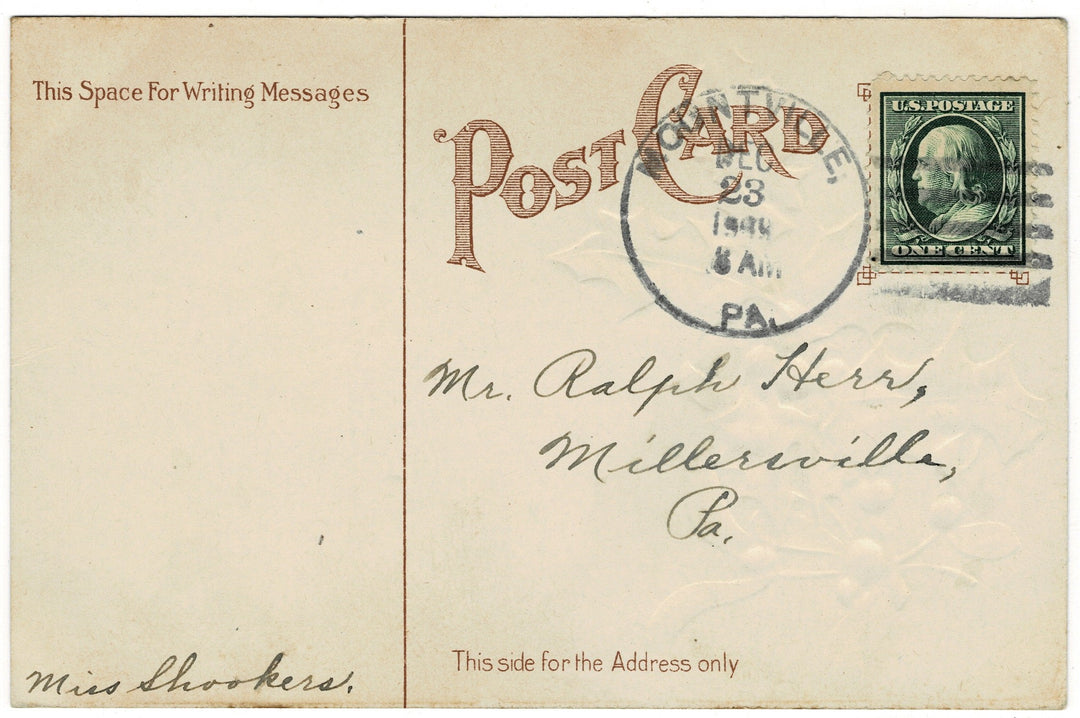 This Space For Writing Messages
POST CARD
MOUNTVILLE,
DEC
23
8 AM
PA.
U.S. POSTAGE
ONE CENT
Mr. Ralph Herr,
Millersville,
Pa.
Miss Shookers.
This side for the Address only